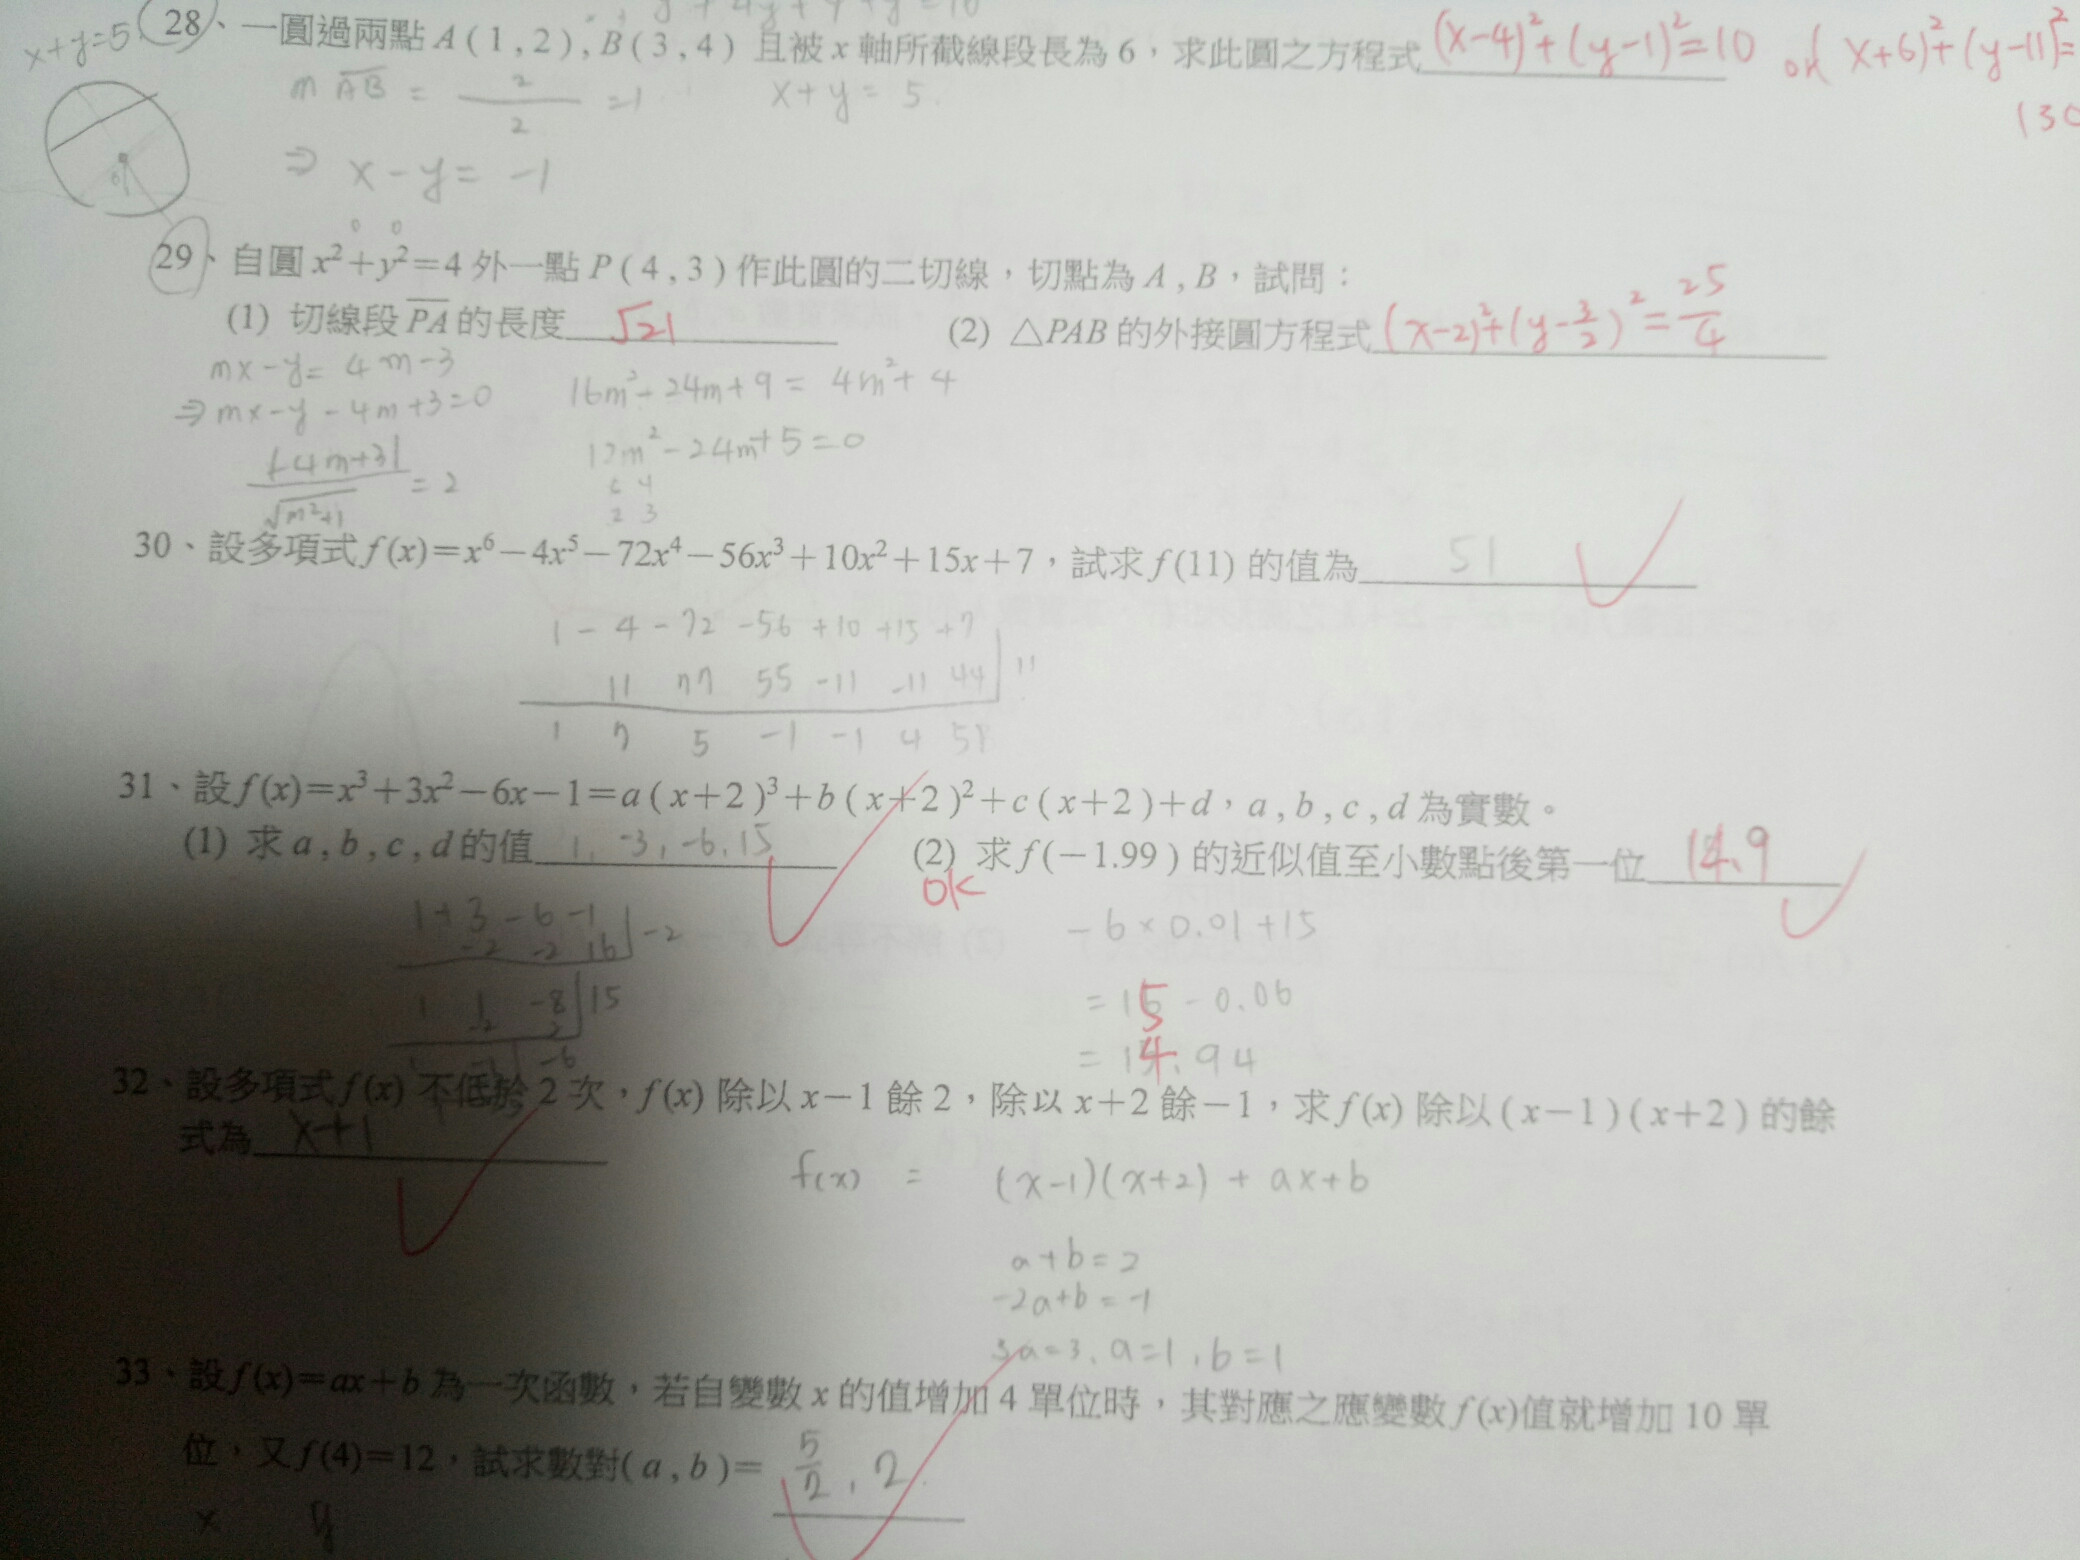 x+y=5
28、一圓過兩點 A(1,2),B(3,4) 且被 x 軸所截線段長為 6，求此圓之方程式 (x-4)²+(y-1)²=10 or (x+6)²+(y-11)²=
130
m AB = 2/2 =1 x+y=5.
⇒ x-y=-1
29、自圓 x²+y²=4 外一點 P(4,3) 作此圓的二切線，切點為 A,B，試問：
(1) 切線段 PA 的長度 √21 (2) △PAB 的外接圓方程式 (x-2)²+(y-3/2)²=25/4
mx-y=4m-3 16m²-24m+9=4m²+4
⇒mx-y-4m+3=0
12m²-24m+5=0
|-4m+3|/√m²+1 =2
6 4
2 3
30、設多項式 f(x)=x⁶-4x⁵-72x⁴-56x³+10x²+15x+7，試求 f(11) 的值為 51
1 -4 -72 -56 +10 +15 +7
11 77 55 -11 -11 44 11
1 7 5 -1 -1 4 51
31、設 f(x)=x³+3x²-6x-1=a(x+2)³+b(x+2)²+c(x+2)+d，a,b,c,d 為實數。
(1) 求 a,b,c,d 的值 1,-3,-6,15 (2) 求 f(-1.99) 的近似值至小數點後第一位 14.9
OK
1+3-6-1
-2 -2 16 -2
-6×0.01+15
1 1 -8 15
-2 2
=15-0.06
=14.94
32、設多項式 f(x) 不低於 2 次，f(x) 除以 x-1 餘 2，除以 x+2 餘-1，求 f(x) 除以 (x-1)(x+2) 的餘
式為 x+1
f(x) = (x-1)(x+2)+ax+b
a+b=2
-2a+b=-1
3a=3,a=1,b=1
33、設 f(x)=ax+b 為一次函數，若自變數 x 的值增加 4 單位時，其對應之應變數 f(x)值就增加 10 單
位，又 f(4)=12，試求數對(a,b)= 5/2,2
x y